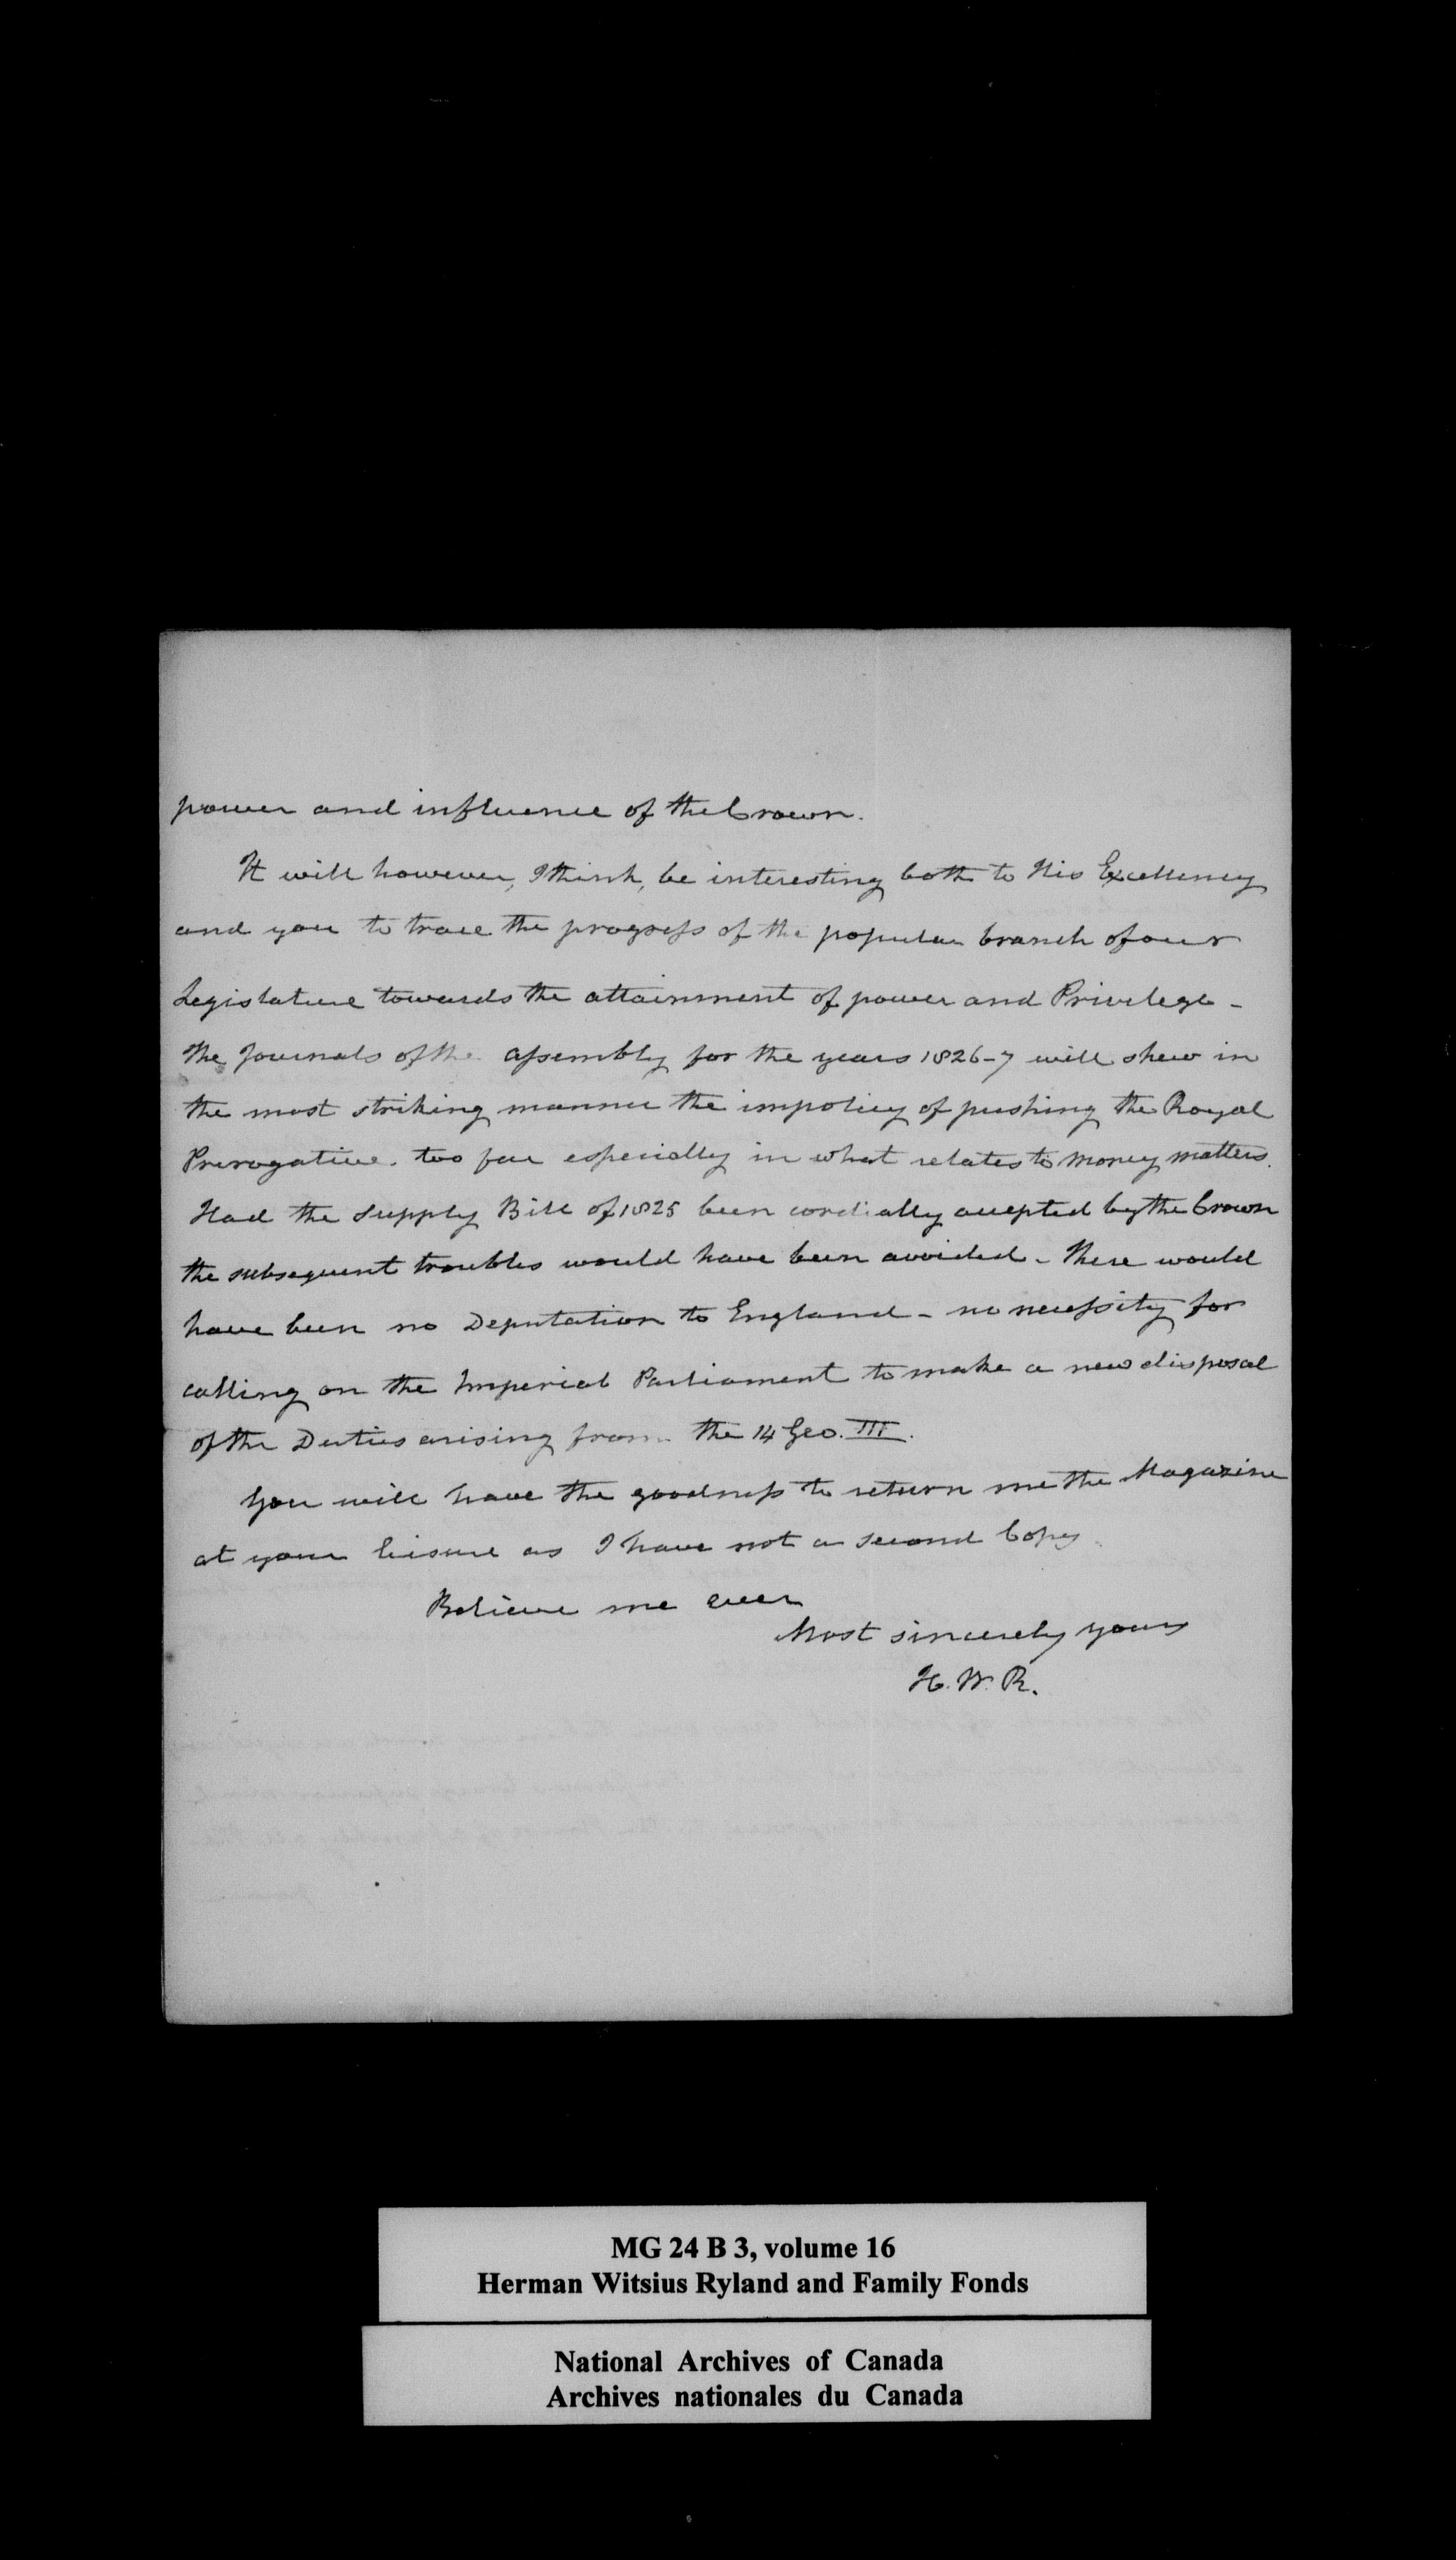 power and influence of the Crown.
It will however, I think, be interesting both to His Excellency
and you to trace the progress of the popular branch of our
Legislature towards the attainment of power and Privilege -
The Journals of the Assembly for the years 1826-7 will shew in
the most striking manner the impolicy of pushing the Royal
Prerogative. too far especially in what relates to money matters.
Had the Supply Bill of 1825 been cordially accepted by the Crown
the subsequent troubles would have been avoided - There would
have been no Deputation to England - no necessity for
calling on the Imperial Parliament to make a new disposal
of the Duties arising from the 14 Geo. III.
You will have the goodness to return me the Magazine
at your leisure as I have not a second Copy.
Believe me ever
Most sincerely yours
H. W. R.
MG 24 B 3, volume 16
Herman Witsius Ryland and Family Fonds
National Archives of Canada
Archives nationales du Canada